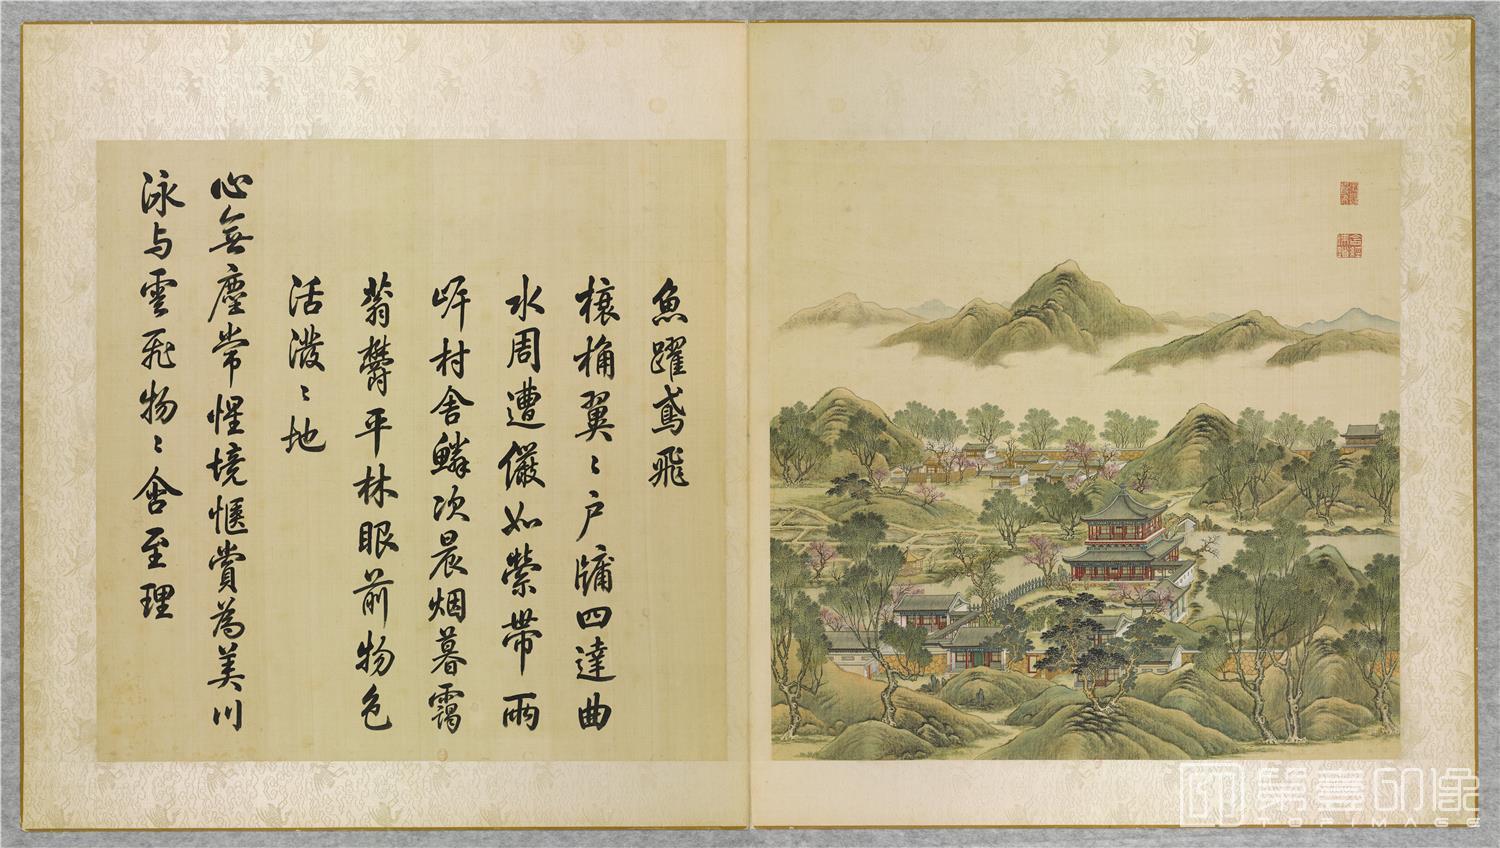 魚躍鳶飛
榱桷翼〻户牗四達曲
水周遭儼如縈帶兩
岸村舍鱗次晨烟暮靄
蓊欝平林眼前物色
活潑〻地
心無塵常惺境愜賞為美川
泳与雲飛物〻含至理
第壹印像
TOPIMAGE